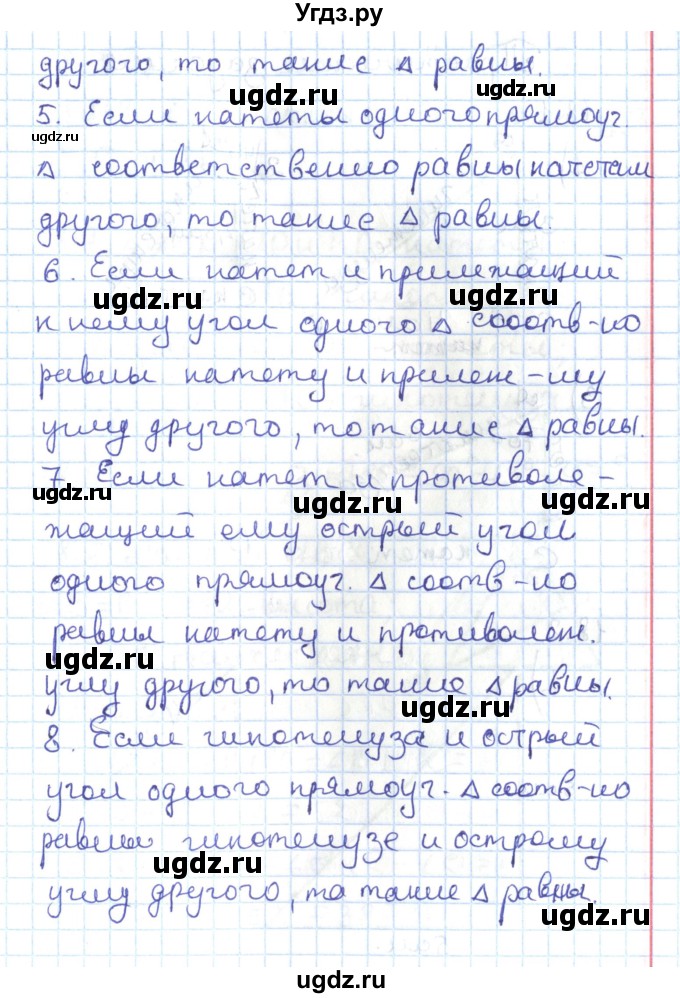 Угдз.ру
другого, то такие Δ равны.
ugdz.ru
5. Если катеты одного прямоуг.
ugdz.ru
Δ соответственно равны катетам
другого, то такие Δ равны.
ugdz.ru
6. Если катет и прилежащий
ugdz.ru ugdz.ru
к нему угол одного Δ сооотв-но
равны катету и прилеж-му
углу другого, то такие Δ равны.
7. Если катет и противоле-
ugdz.ru ugdz.ru
жащий ему острый угол
одного прямоуг. Δ соотв-но
равны катету и противолеж.
ugdz.ru
углу другого, то такие Δ равны.
ugdz.ru
8. Если гипотенуза и острый
угол одного прямоуг. Δ соотв-но
равны гипотенузе и острому
ugdz.ru
углу другого, та такие Δ равны.
ugdz.ru
ugdz.ru